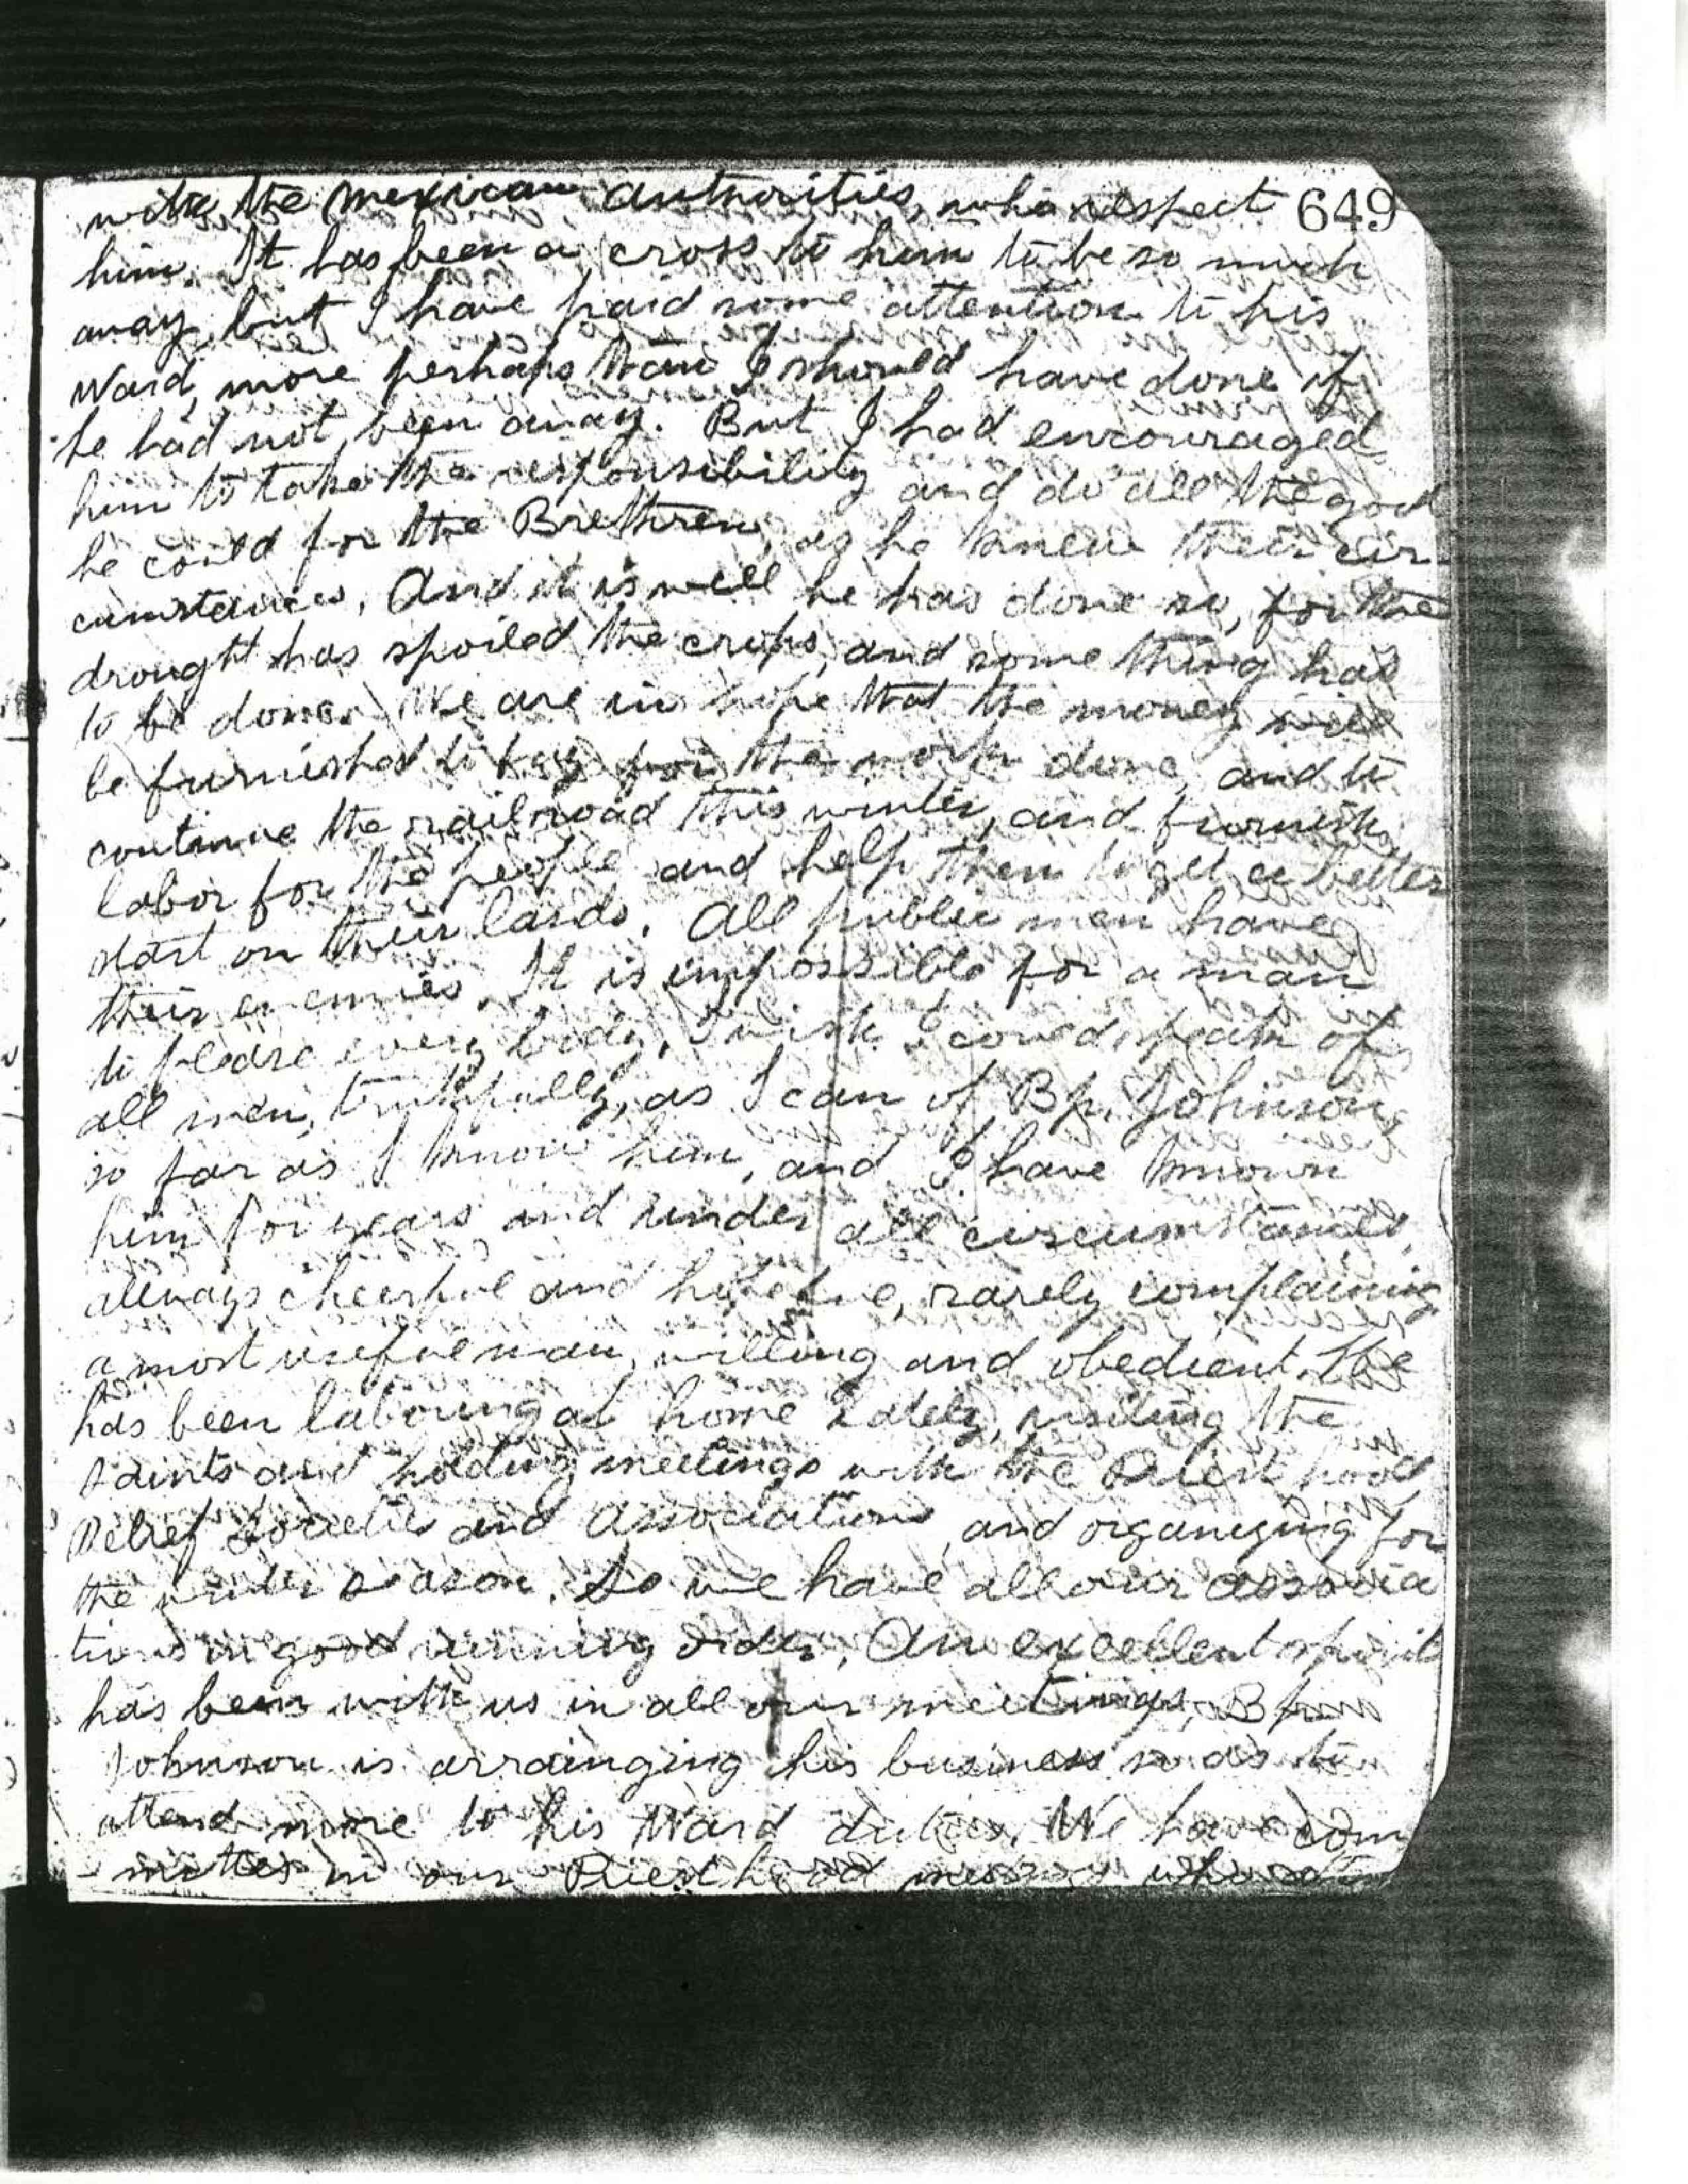 with the Mexican authorities, who respect 649
him. It has been a cross to him to be so much
away, but I have paid some attention to his
Ward, more perhaps than I should have done if
he had not been away. But I had encouraged
him to take the responsibility and do all the good
he could for the Brethren, as he knew their cir-
cumstances, And it is well he has done so, for the
drought has spoiled the crops, and some thing had
to be done. We are in hope that the money will
be furnished to pay for the work done, and to
continue the railroad this winter, and furnish
labor for the people and help them to get a better
start on their lands. All public men have
their enemies. It is impossible for a man
to please every body, I wish I could speak of
all men, truthfully, as I can of Bp. Johnson,
so far as I know him, and I have known
him for years and under all circumstances,
allways cheerful and hopeful, rarely complaining
a most useful man, willing and obedient. He
has been labouring at home lately, visiting the
Saints and holding meetings with the Priesthood
Relief Societies and associations, and organizing for
the winter season. So we have all our associa
tions in good running order, An excellent spirit
has been with us in all our meetings,
Johnson is arrainging his business so as to
attend more to his Ward duties. We have com
-mittes in our Priesthood